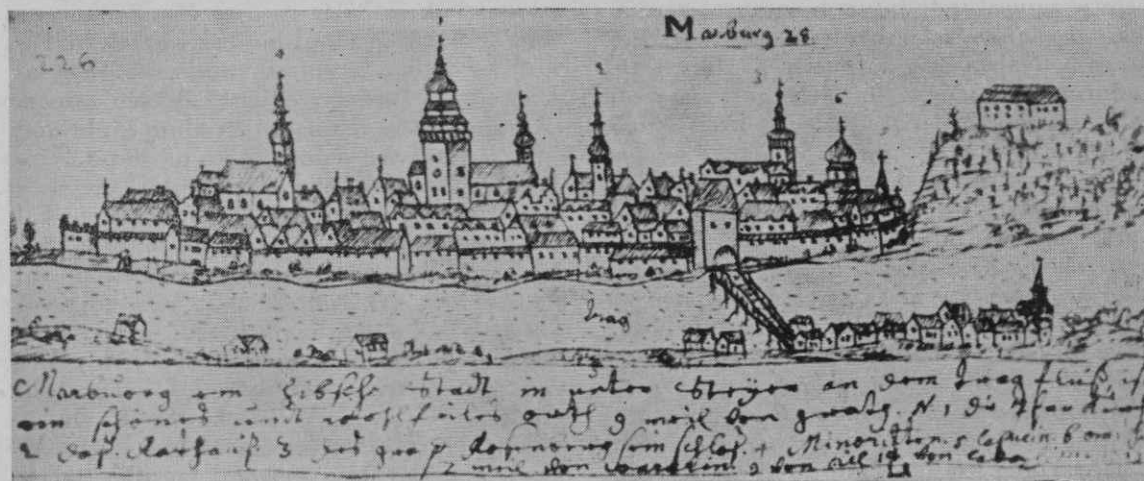 Marburg 28.
226
4
2
3
6
5
Trag
Marburg ein hibsche Stadt in unter Steyer an dem Trag fluß, ist
ein schönes unnd wohlfeiles orth 9 meil von gratz. N 1 die Pfar kirch
2 daß Rathauß 3 des graf Rosenberg sein schloß 4 Minoritten 5 Capucin 6
7 meil von 9 von Cill 12 von